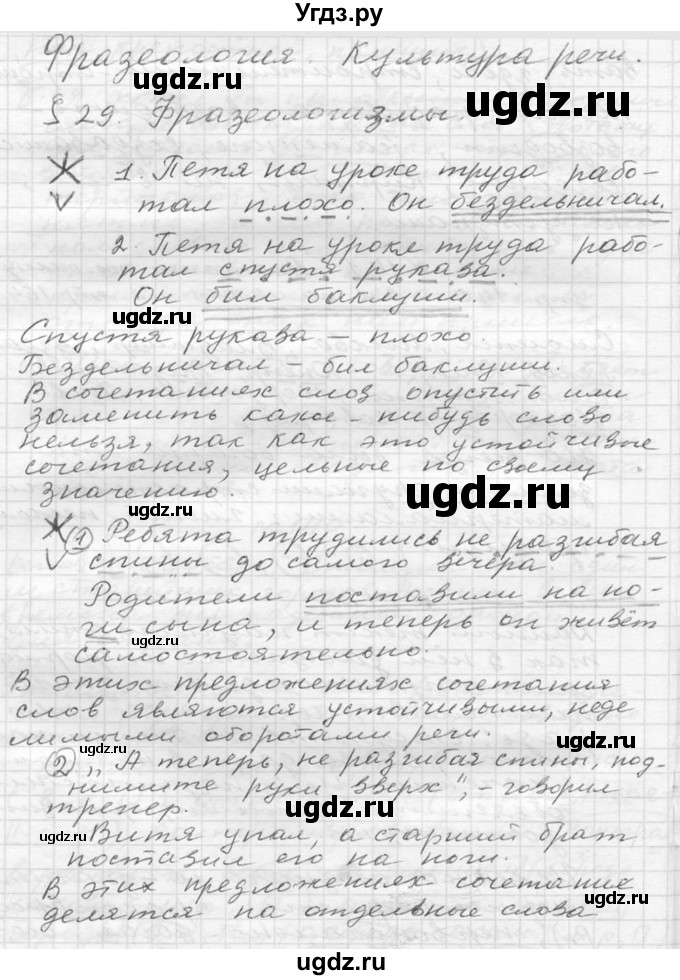 Угдз.ру
Фразеология. Культура речи.
ugdz.ru
§ 29. Фразеологизмы.
ugdz.ru
1. Петя на уроке труда рабо-
тал плохо. Он бездельничал.
2. Петя на уроке труда рабо-
тал спустя рукава.
Он бил баклуши.
ugdz.ru
Спустя рукава – плохо.
Бездельничал – бил баклуши.
ugdz.ru
В сочетаниях слов опустить или
заменить какое-нибудь слово
нельзя, так как это устойчивые
сочетания, цельные по своему
значению.
ugdz.ru
ugdz.ru
1 Ребята трудились не разгибая
спины до самого вечера.
ugdz.ru
Родители поставили на но-
ги сына, и теперь он живёт
самостоятельно.
ugdz.ru
В этих предложениях сочетания
слов являются устойчивыми, неде
лимыми оборотами речи.
ugdz.ru
2 „А теперь, не разгибая спины, под-
нимите руки вверх", – говорил
тренер.
ugdz.ru
ugdz.ru
Витя упал, а старший брат
поставил его на ноги.
ugdz.ru
В этих предложениях сочетание
делятся на отдельные слова
ugdz.ru
ugdz.ru